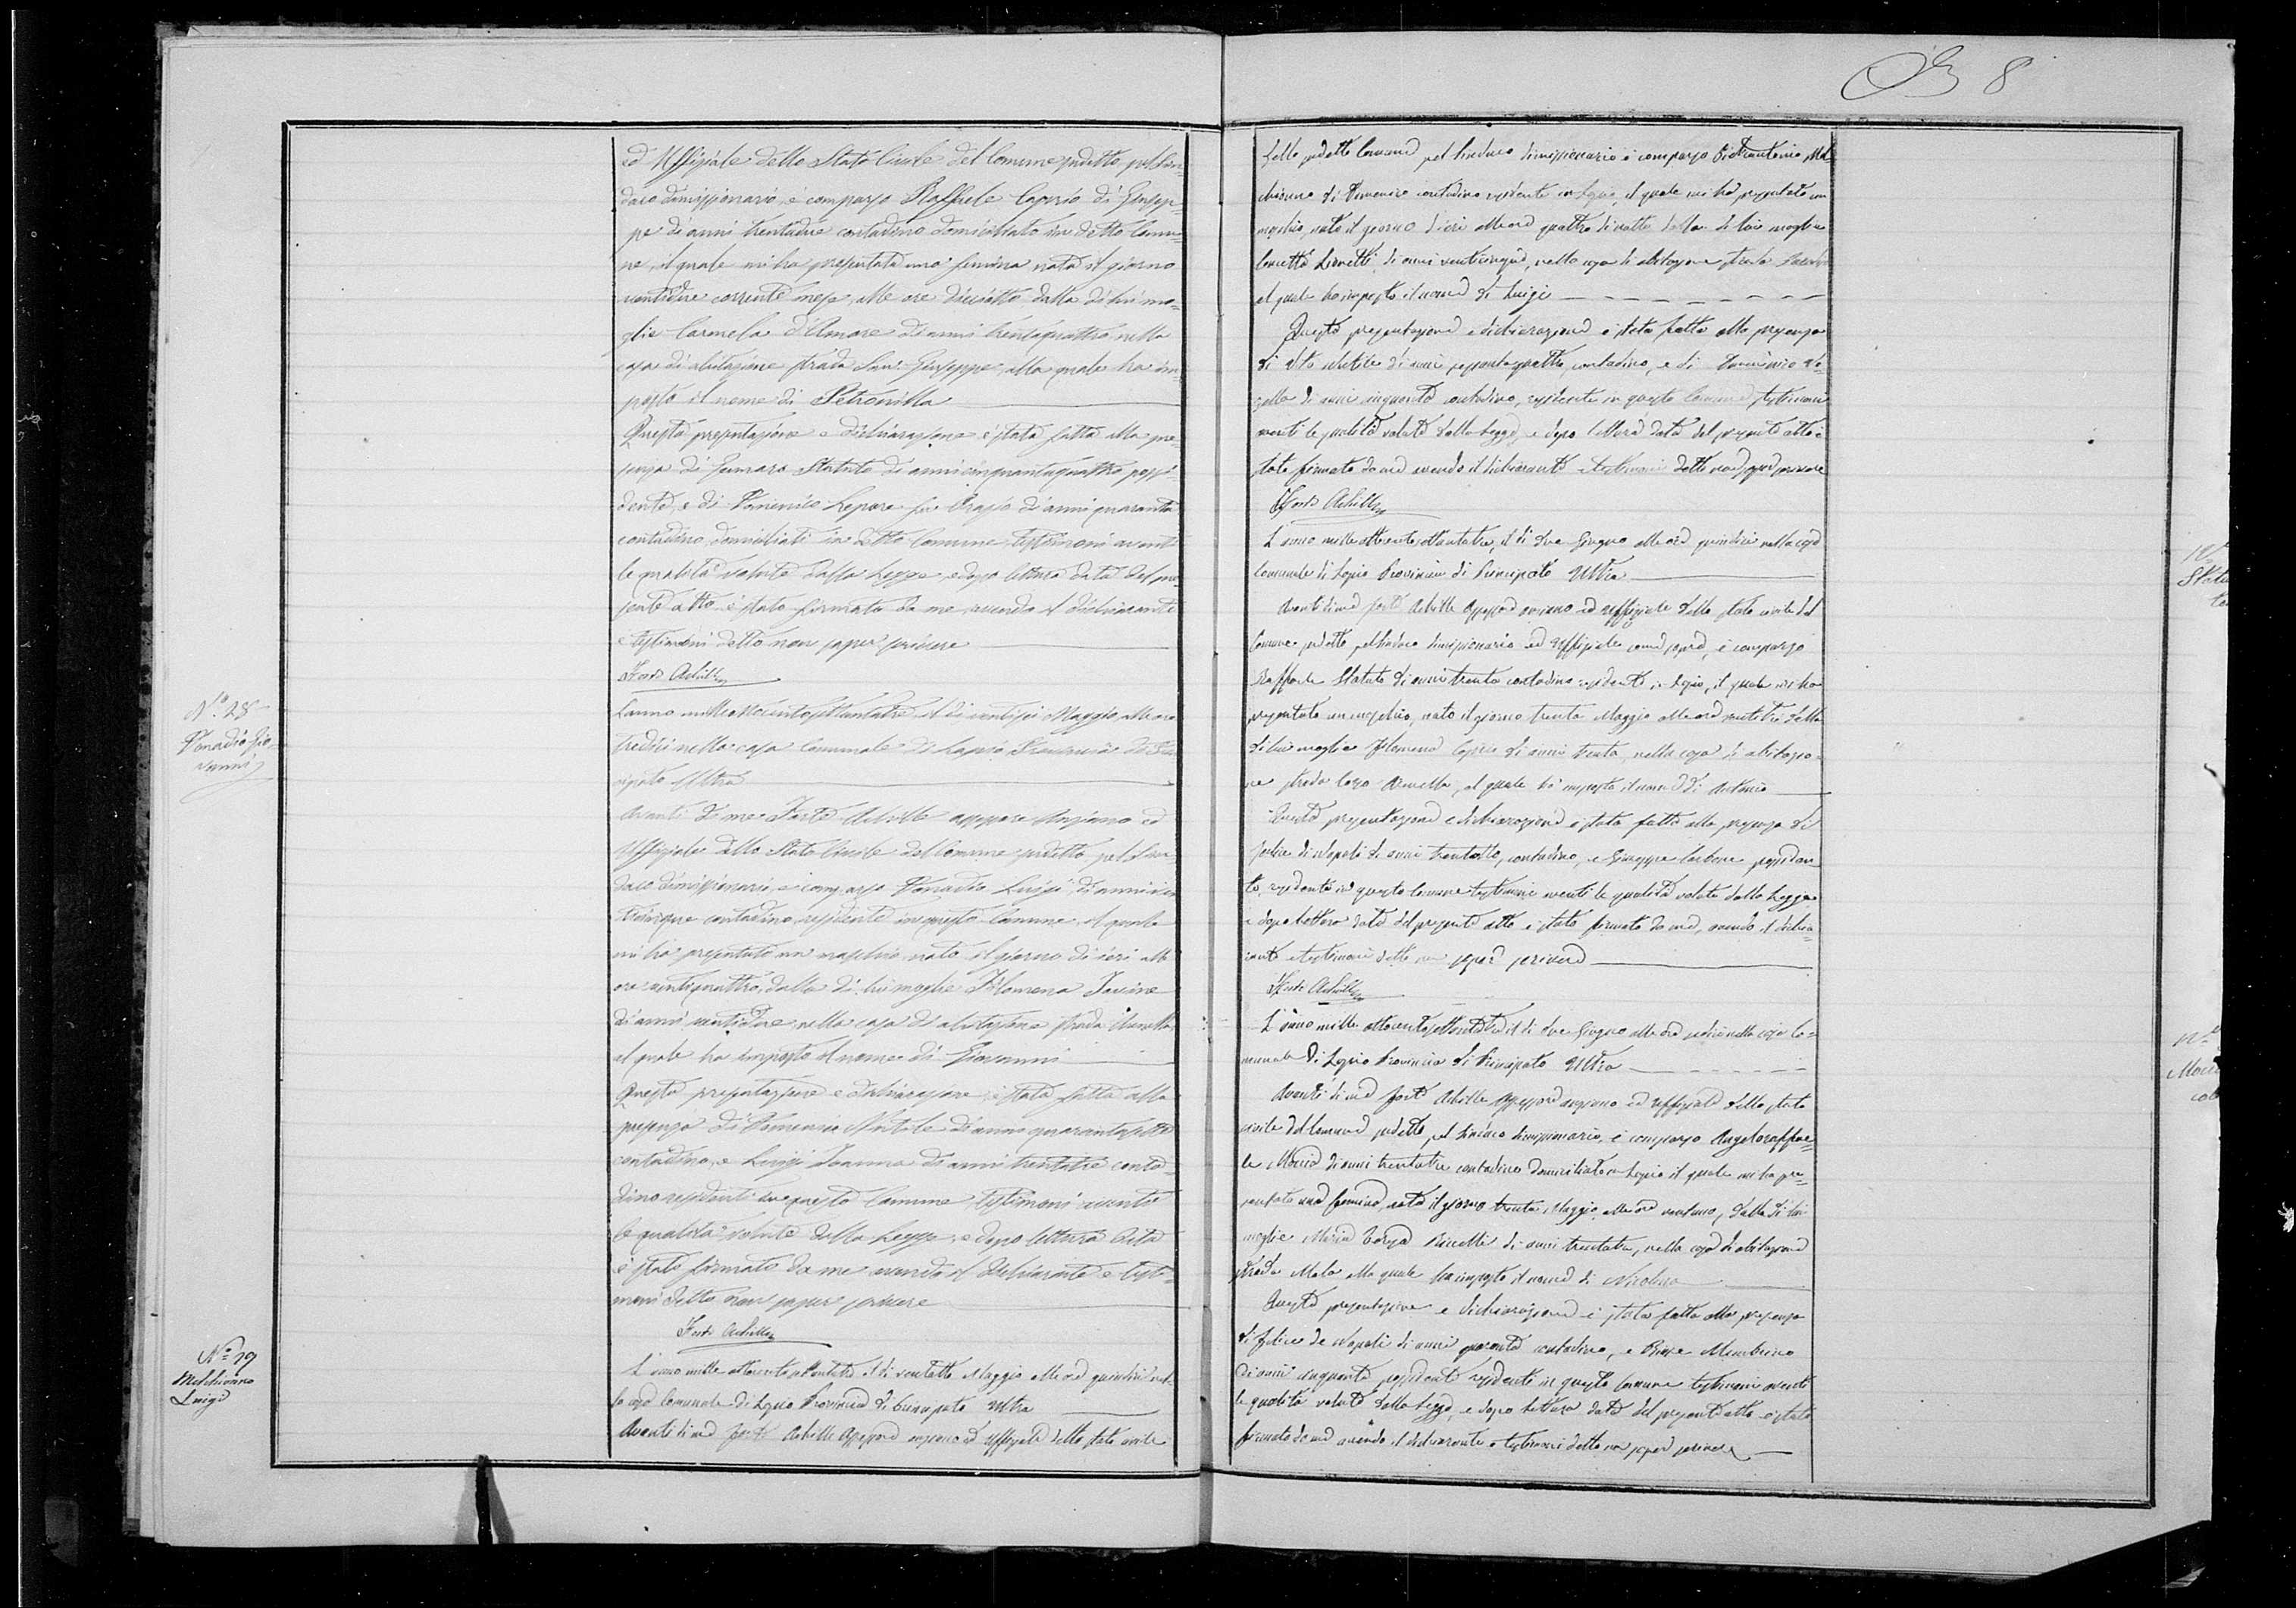 8
ed Uffiziale dello Stato Civile del Comune sudetto pel Sin=
daco dimissionario, è comparso Raffaele Caprio di Giusep=
pe di anni trentadue contadino domiciliato in detto Comu=
ne, il quale mi ha presentato una femina nata il giorno
ventidue corrente mese, alle ore dieciotto dalla di lui mo=
glie Carmela d'Amore di anni trentaquattro nella
casa di abitazione strada San Giuseppe, alla quale ha im=
posto il nome di Petronilla
Questa presentazione e dichiarazione è stata fatta alla pre=
senza di Gennaro Statuto di anni cinquantaquattro possi=
dente, e di Domenico Lepore fu Orazio di anni quaranta
contadino domiciliati in detto Comune, testimoni aventi
le qualità volute dalla Legge, e dopo lettura data del pre=
sente atto è stato firmato da me, avendo il dichiarante
e testimoni detto non saper scrivere
Forte Achille
N.º 28
Vanadio Gio
vanni
L'anno milleottocentottantatre il dì ventisei Maggio alle ore
tredici nella casa Comunale di Lapio Provincia di Prin
cipato Ultra
Avanti di me Forte Achille assessore Anziano ed
Uffiziale dello Stato Civile del Comune sudetto pel Sin=
daco dimissionario, è comparso Vanadio Luigi di anni ven
ticinque contadino residente in questo Comune, il quale
mi ha presentato un maschio nato il giorno di ieri alle
ore ventiquattro, dalla di lui moglie Filomena Iarino
di anni ventidue nella casa di abitazione strada Arenella
al quale ha imposto il nome di Giovanni
Questa presentazione e dichiarazione è stata fatta alla
presenza di Domenico Natale di anni quarantasette
contadino, e Luigi Ioanna di anni trentatre conta=
dino residenti in questo Comune, testimoni aventi
le qualità volute dalla Legge, e dopo lettura data
è stato firmato da me avendo il dichiarante e testi=
moni detto non saper scrivere
Forte Achille
N.º 29
Melchionno
Luigi
L'anno mille ottocentottantatre il dì ventotto Maggio alle ore quindici nel=
la casa Comunale di Lapio Provincia di Principato Ultra
Avanti di me Forte Achille Assessore anziano ed uffiziale dello stato civile
dello sudetto Comune pel Sindaco dimissionario è comparso Pietrantonio Mel=
chionno di Domenico contadino residente in Lapio, il quale mi ha presentato un
maschio, nato il giorno di ieri alle ore quattro di notte dalla di lui moglie
Concetta Lionetti, di anni venticinque, nella casa di abitazione strada
al quale ha imposto il nome di Luigi
Questa presentazione e dichiarazione è stata fatta alla presenza
di Vito Natale di anni sessantaquattro, contadino, e di Domenico
di anni cinquanta contadino, residente in questo Comune, testimoni
aventi le qualità volute dalla Legge, e dopo lettura data del presente atto è
stato firmato da me avendo il dichiarante e testimoni detto non saper scrivere
Forte Achille
L'anno mille ottocento ottantatre, il dì due Giugno alle ore quindici nella casa
Comunale di Lapio Provincia di Principato Ultra
Nº
Statu
to
Avanti di me Forte Achille Assessore anziano ed uffiziale dello stato civile del
Comune sudetto, pel Sindaco dimissionario ed uffiziale come sopra, è comparso
Raffaele Statuto di anni trenta contadino residente in Lapio, il quale mi ha
presentato un maschio, nato il giorno trenta Maggio alle ore ventitre dalla
di lui moglie Filomena Caprio di anni trenta, nella casa di abitazio=
ne strada Capo Arenella, al quale ha imposto il nome di Antonio
Questa presentazione e dichiarazione è stata fatta alla presenza di
Felice di Napoli di anni trentotto, contadino, e Giuseppe Carbone possiden=
te, residente in questo Comune testimoni aventi le qualità volute dalla Legge
e dopo lettura data del presente atto è stato firmato da me, avendo il dichia=
rante e testimoni detto non saper scrivere
Forte Achille
L'anno mille ottocentottantatre il dì due Giugno alle ore sedici nella casa Co=
munale di Lapio Provincia di Principato Ultra
Nº
Avanti di me Forte Achille Assessore anziano ed uffiziale dello stato
civile del Comune sudetto, pel Sindaco dimissionario, è comparso Angeloraffae=
le Moccia di anni trentatre contadino domiciliato in Lapio il quale mi ha pre=
sentato una femina, nata il giorno trenta Maggio alle ore ventuno, dalla di lui
moglie Maria Teresa di anni trentatre, nella casa di abitazione
strada Molo alla quale ha imposto il nome di Nicolina
Questa presentazione e dichiarazione è stata fatta alla presenza
di Felice de Napoli di anni quaranta contadino, e Biase
di anni cinquanta possidente residente in questo Comune testimoni aventi
le qualità volute dalla Legge, e dopo lettura data del presente atto è stato
firmato da me avendo il dichiarante e testimoni detto non saper scrivere